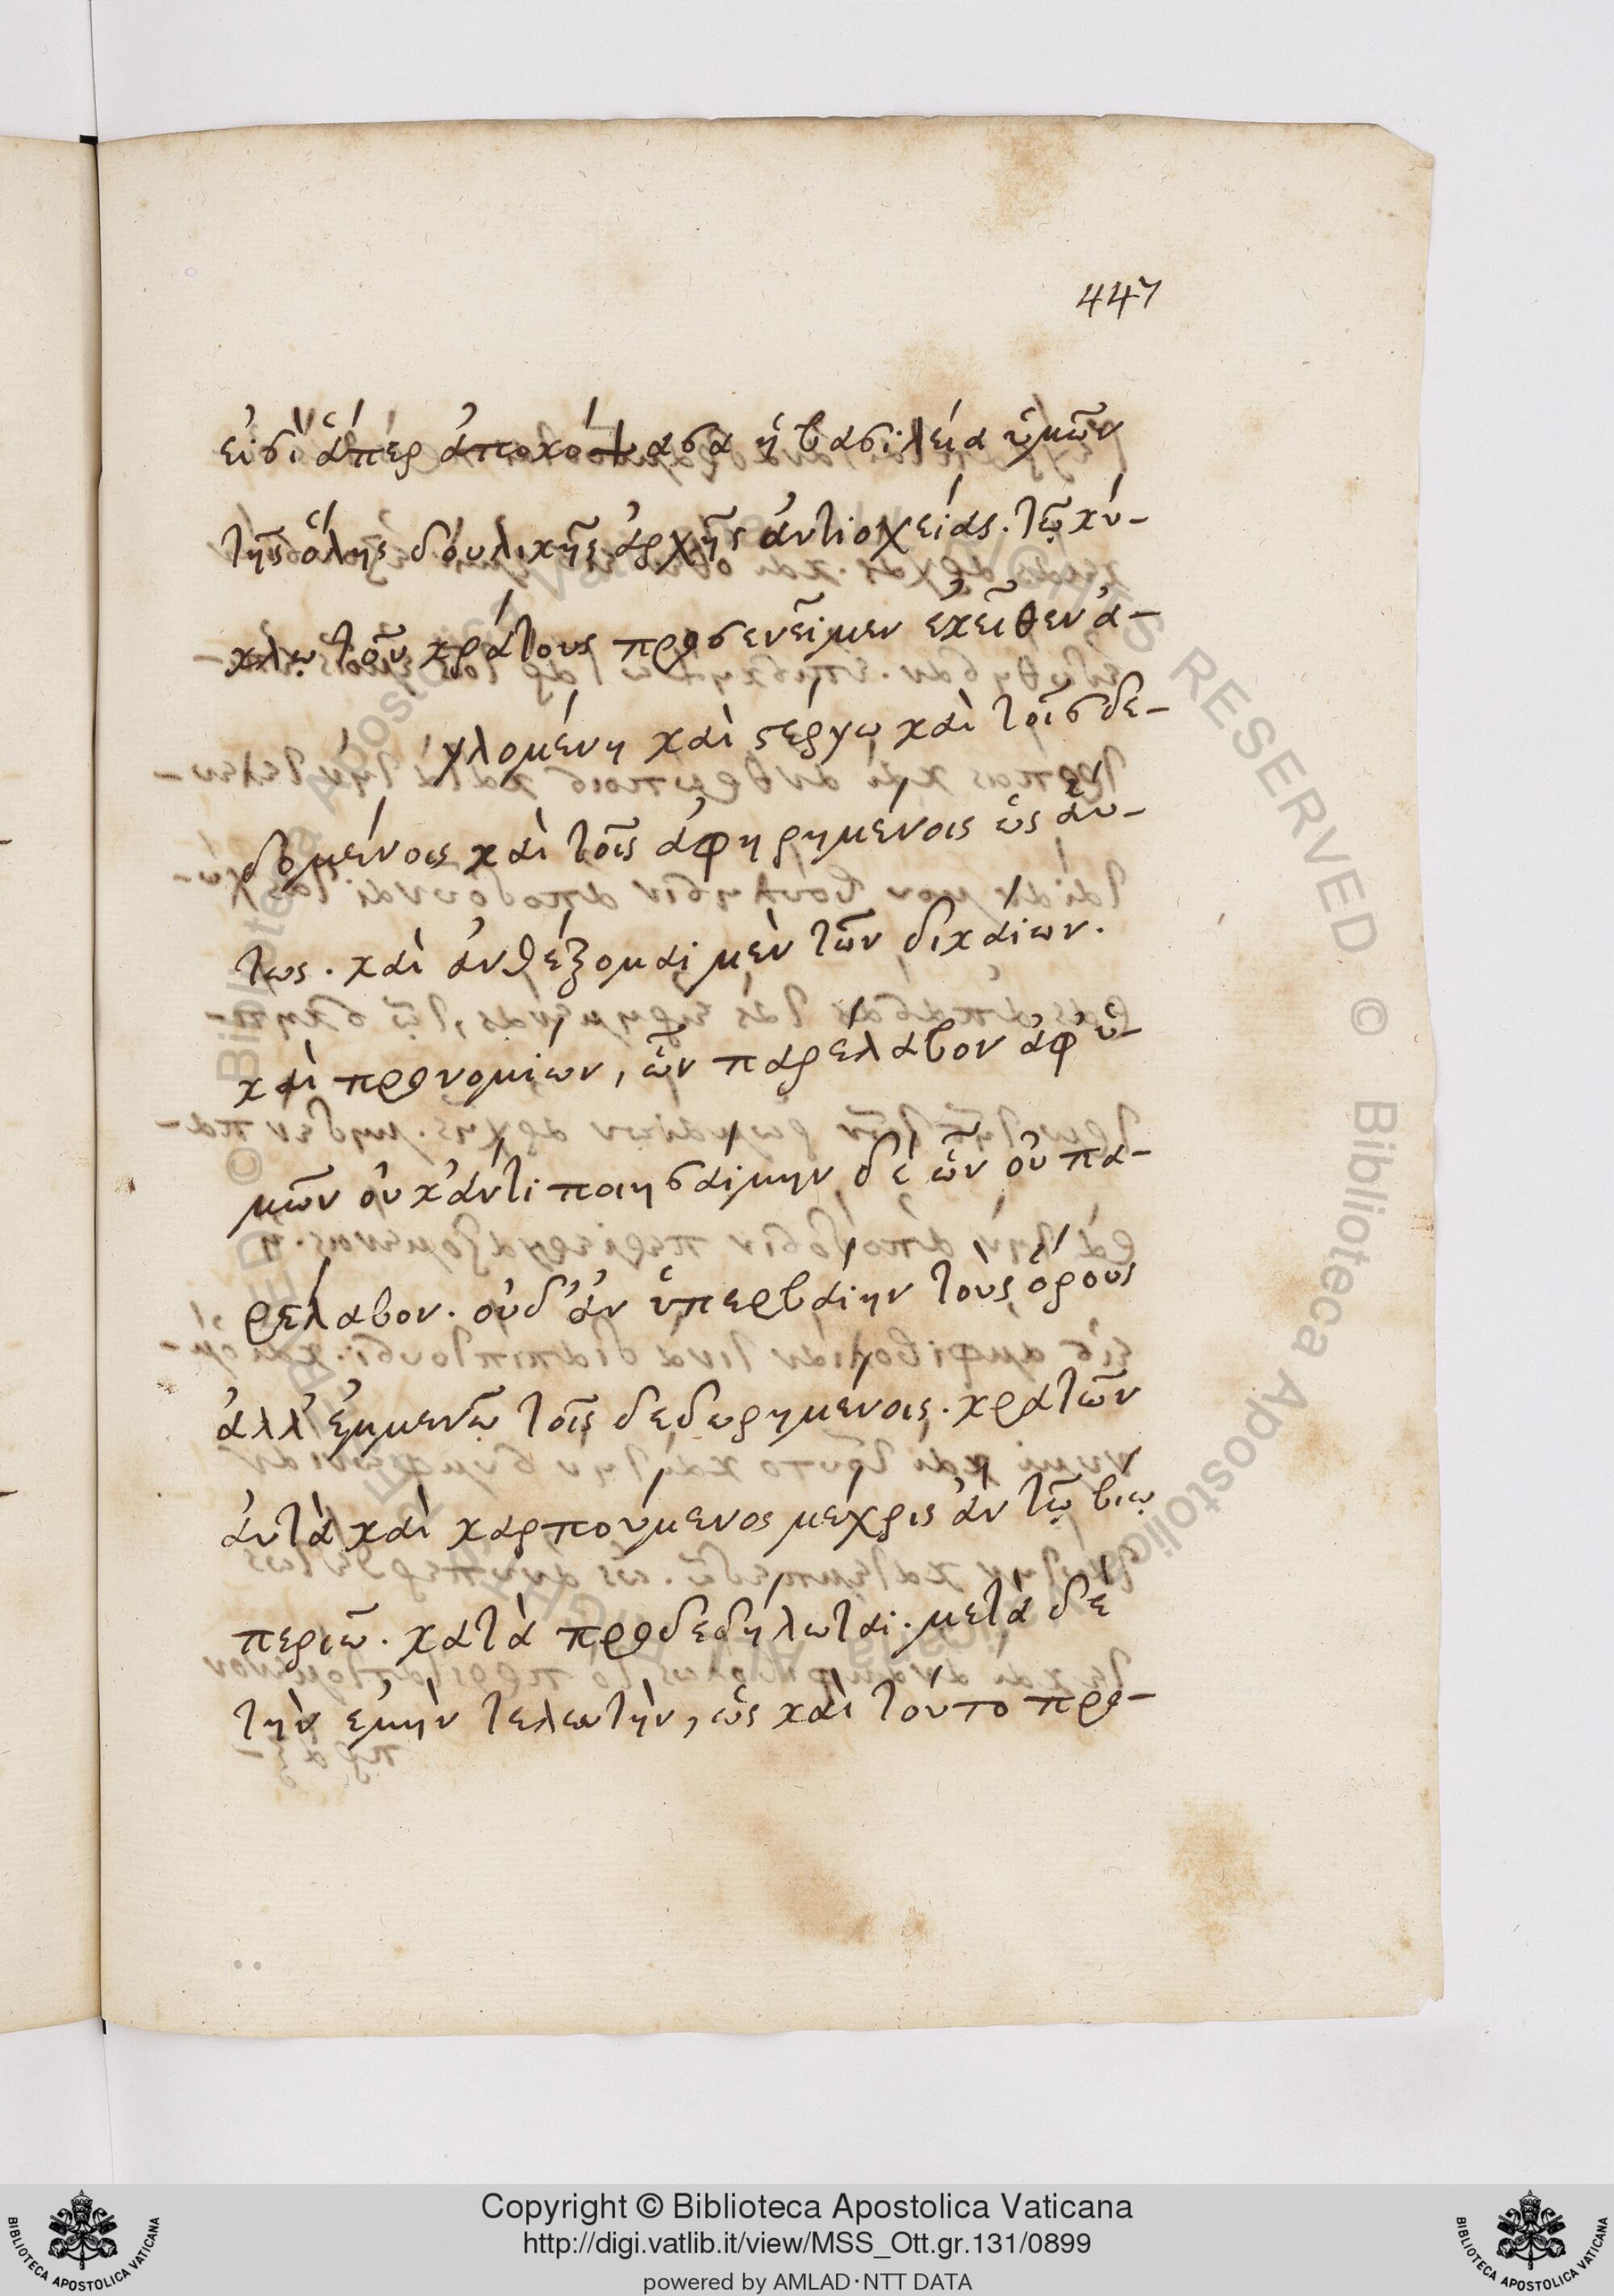 447
εἰσὶ ἅπερ ἀποκόψασα ἡ βασιλεία ὑμῶν
τῆς ὅλης δουλικῆς ἀρχῆς ἀντιοχείας. τῶ κύ-
κλω τοῦ κράτους προσενεῖμεν ἐκεῖθεν ἀ-
γλομένη καὶ στέργω καὶ τοῖς δε-
δομένοις καὶ τοῖς ἀφηρημένοις ὡς ἂυ-
τως. καὶ ἀνθέξομαι μὲν τῶν δικαίων.
καὶ προνομίων, ὧν παρέλαβον ἀφ' ὑ-
μῶν οὐκ ἀντιποιησαίμην δὲ ὧν οὐ πα-
ρέλαβον. οὐδ' ἂν ὑπερβαίην τοὺς ὅρους
ἀλλ' ἐμμενῶ τοῖς δεδωρημένοις. κρατῶν
ἀυτὰ καὶ καρπούμενος μέχρις ἂν τῶ βιω
περιῶ. κατὰ προδεδήλωται. μετὰ δὲ
τὴν ἐμὴν τελευτὴν, ὡς καὶ τούτο προ-
© Biblioteca Apostolica Vaticana
Copyright © Biblioteca Apostolica Vaticana
http://digi.vatlib.it/view/MSS_Ott.gr.131/0899
powered by AMLAD·NTT DATA
BIBLIOTECA APOSTOLICA VATICANA
BIBLIOTECA APOSTOLICA VATICANA